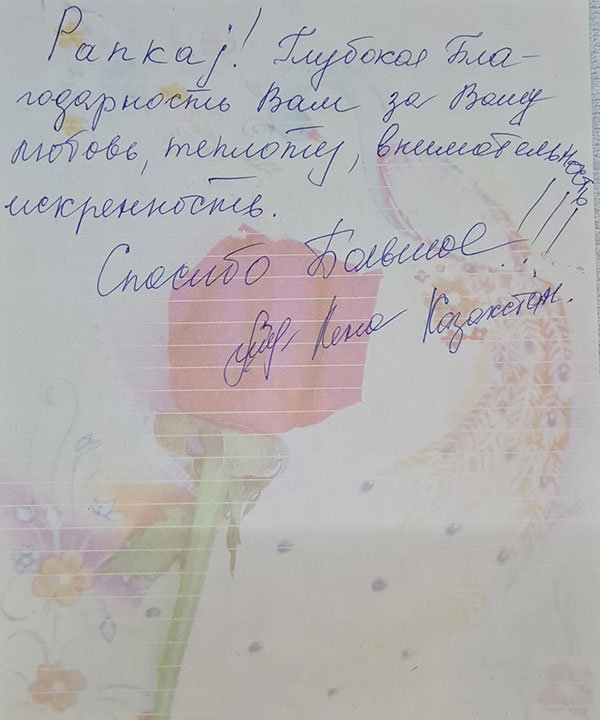 Pankaj! Глубокая Бла-
годарность Вам за Вашу
любовь, теплоту, внимательность
искренность.
Спасибо Большое!!!
Лена Казахстан.